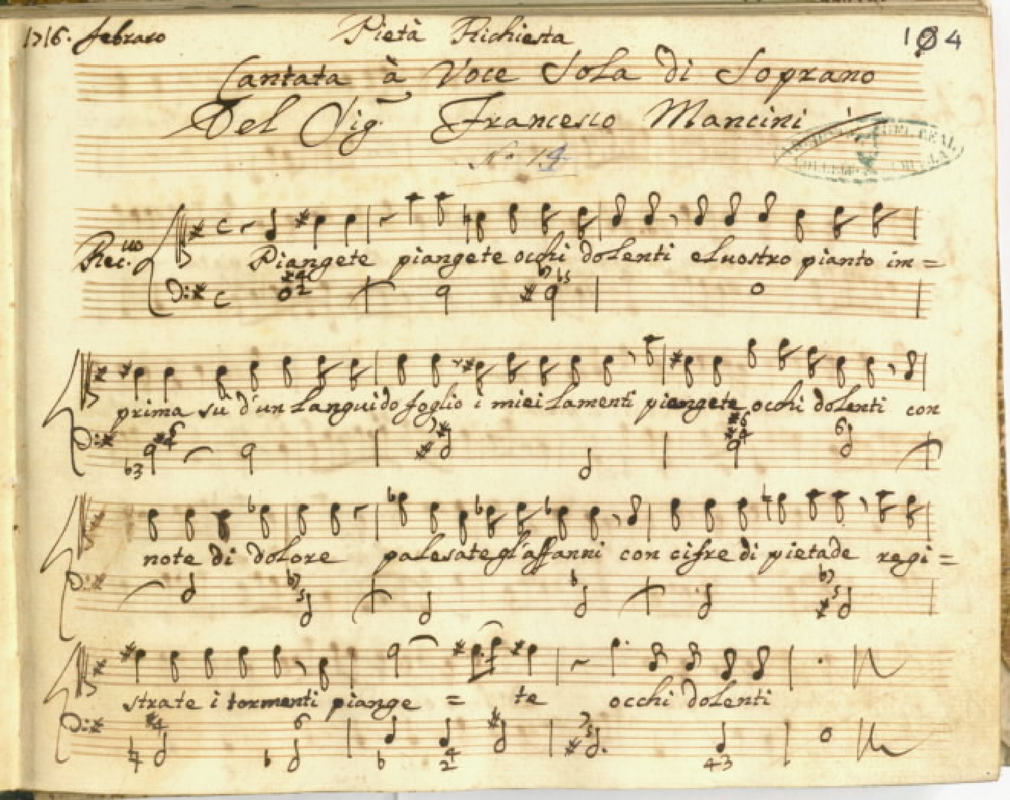 1716. febraro Pietà Richiesta 104
Cantata à Voce Sola di Soprano
Del Sig.r Francesco Mancini
N.o 14
Rec.uo Piangete piangete occhi dolenti e'l vostro pianto im=
prima sù d'un languido foglio i miei lamenti piangete occhi dolenti con
note di dolore palesate gl'affanni con cifre di pietade regi=
strate i tormenti piange = te occhi dolenti